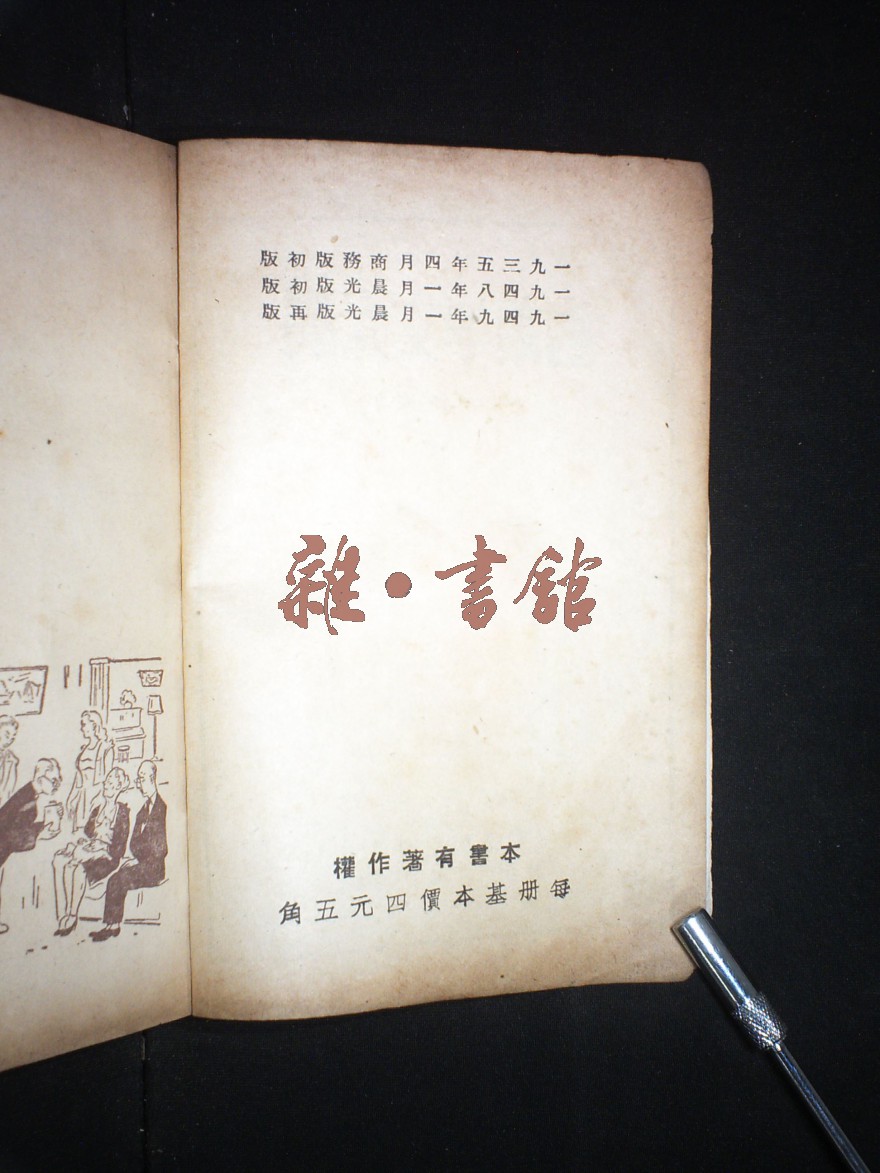 一九三五年四月商務版初版
一九四八年一月晨光版初版
一九四九年一月晨光版再版
雜·書館
本書有著作權
每册基本價四元五角